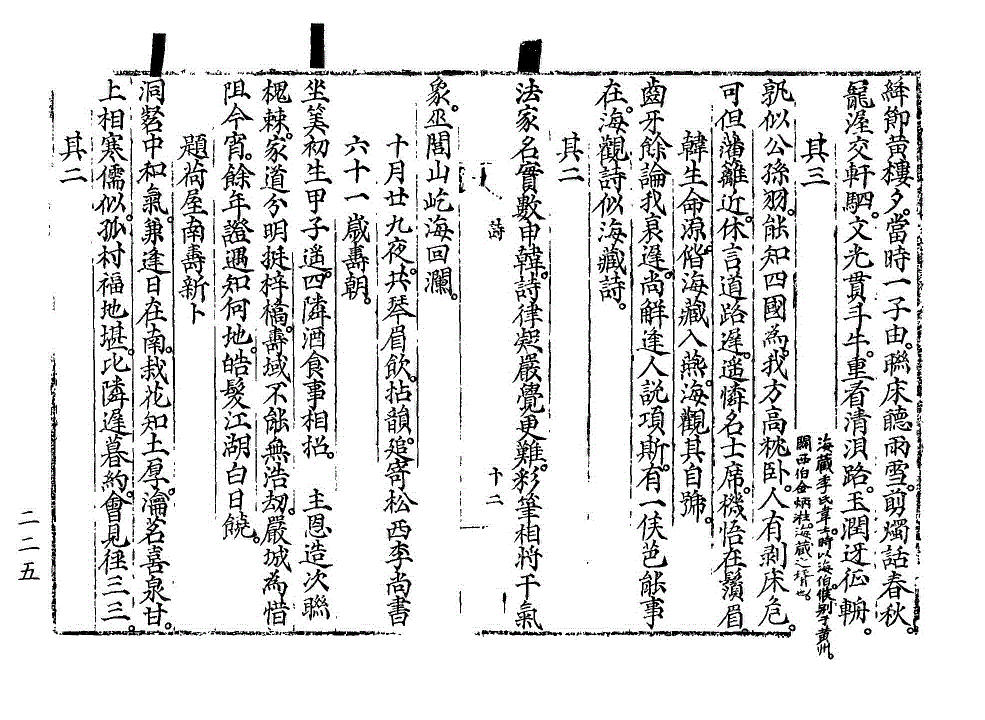 絳節黃樓夕。當時一子由。聯床聽雨雪。剪燭話春秋。
寵渥交軒駟。文光貫斗牛。重看清浿路。玉潤迓征輈。
海藏李氏韋。時以海伯候別于黃州。
關西伯金炳 海藏之壻也。
其三
孰似公孫羽。能知四國為。我方高枕卧。人有剥床危。
可但藩籬近。休言道路遲。遥憐名士席。機悟在鬚眉
韓生命源。偕海藏入燕。海觀其自號。
齒牙餘論我衰遲。尚解逢人說項斯。有一佅芭能事
在。海觀詩似海藏詩。
其二
法家名實數申韓。詩律凝嚴覺更難。彩筆相將干氣
詩
十二
象。巫閭山屹海回瀾。
十月廿九夜。共琴眉飲。拈韻。追寄松西李尚書
六十一歲壽朝。
坐筭初生甲子遥。四隣酒食事相招。 主恩造次聯
槐棘。家道分明挺梓橋。壽域不能無浩劫。嚴城為惜
阻今宵。餘年證遇知何地。皓髮江湖白日饒。
題荷屋南壽新卜
洞窈中和氣。兼逢日在南。栽花知土厚。瀹茗喜泉甘。
上相寒儒似。孤村福地堪。比隣遲暮約。會見徑三三。
其二
二二五